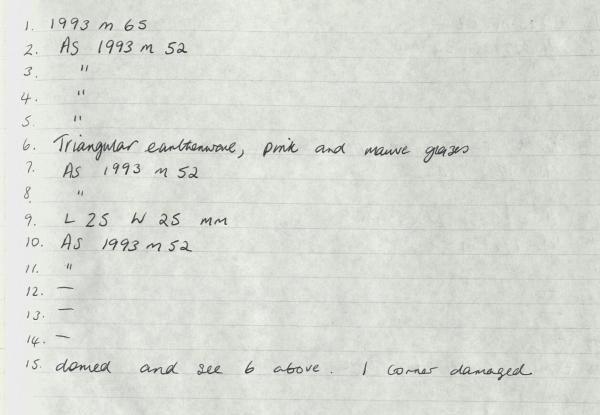 1. 1993 m 65
2. AS 1993 m 52
3. "
4. "
5. "
6. Triangular earthenware, pink and mauve glazes
7. AS 1993 m 52
8. "
9. L 25 W 25 mm
10. AS 1993 m 52
11. "
12. —
13. —
14. —
15. domed and see 6 above. 1 corner damaged